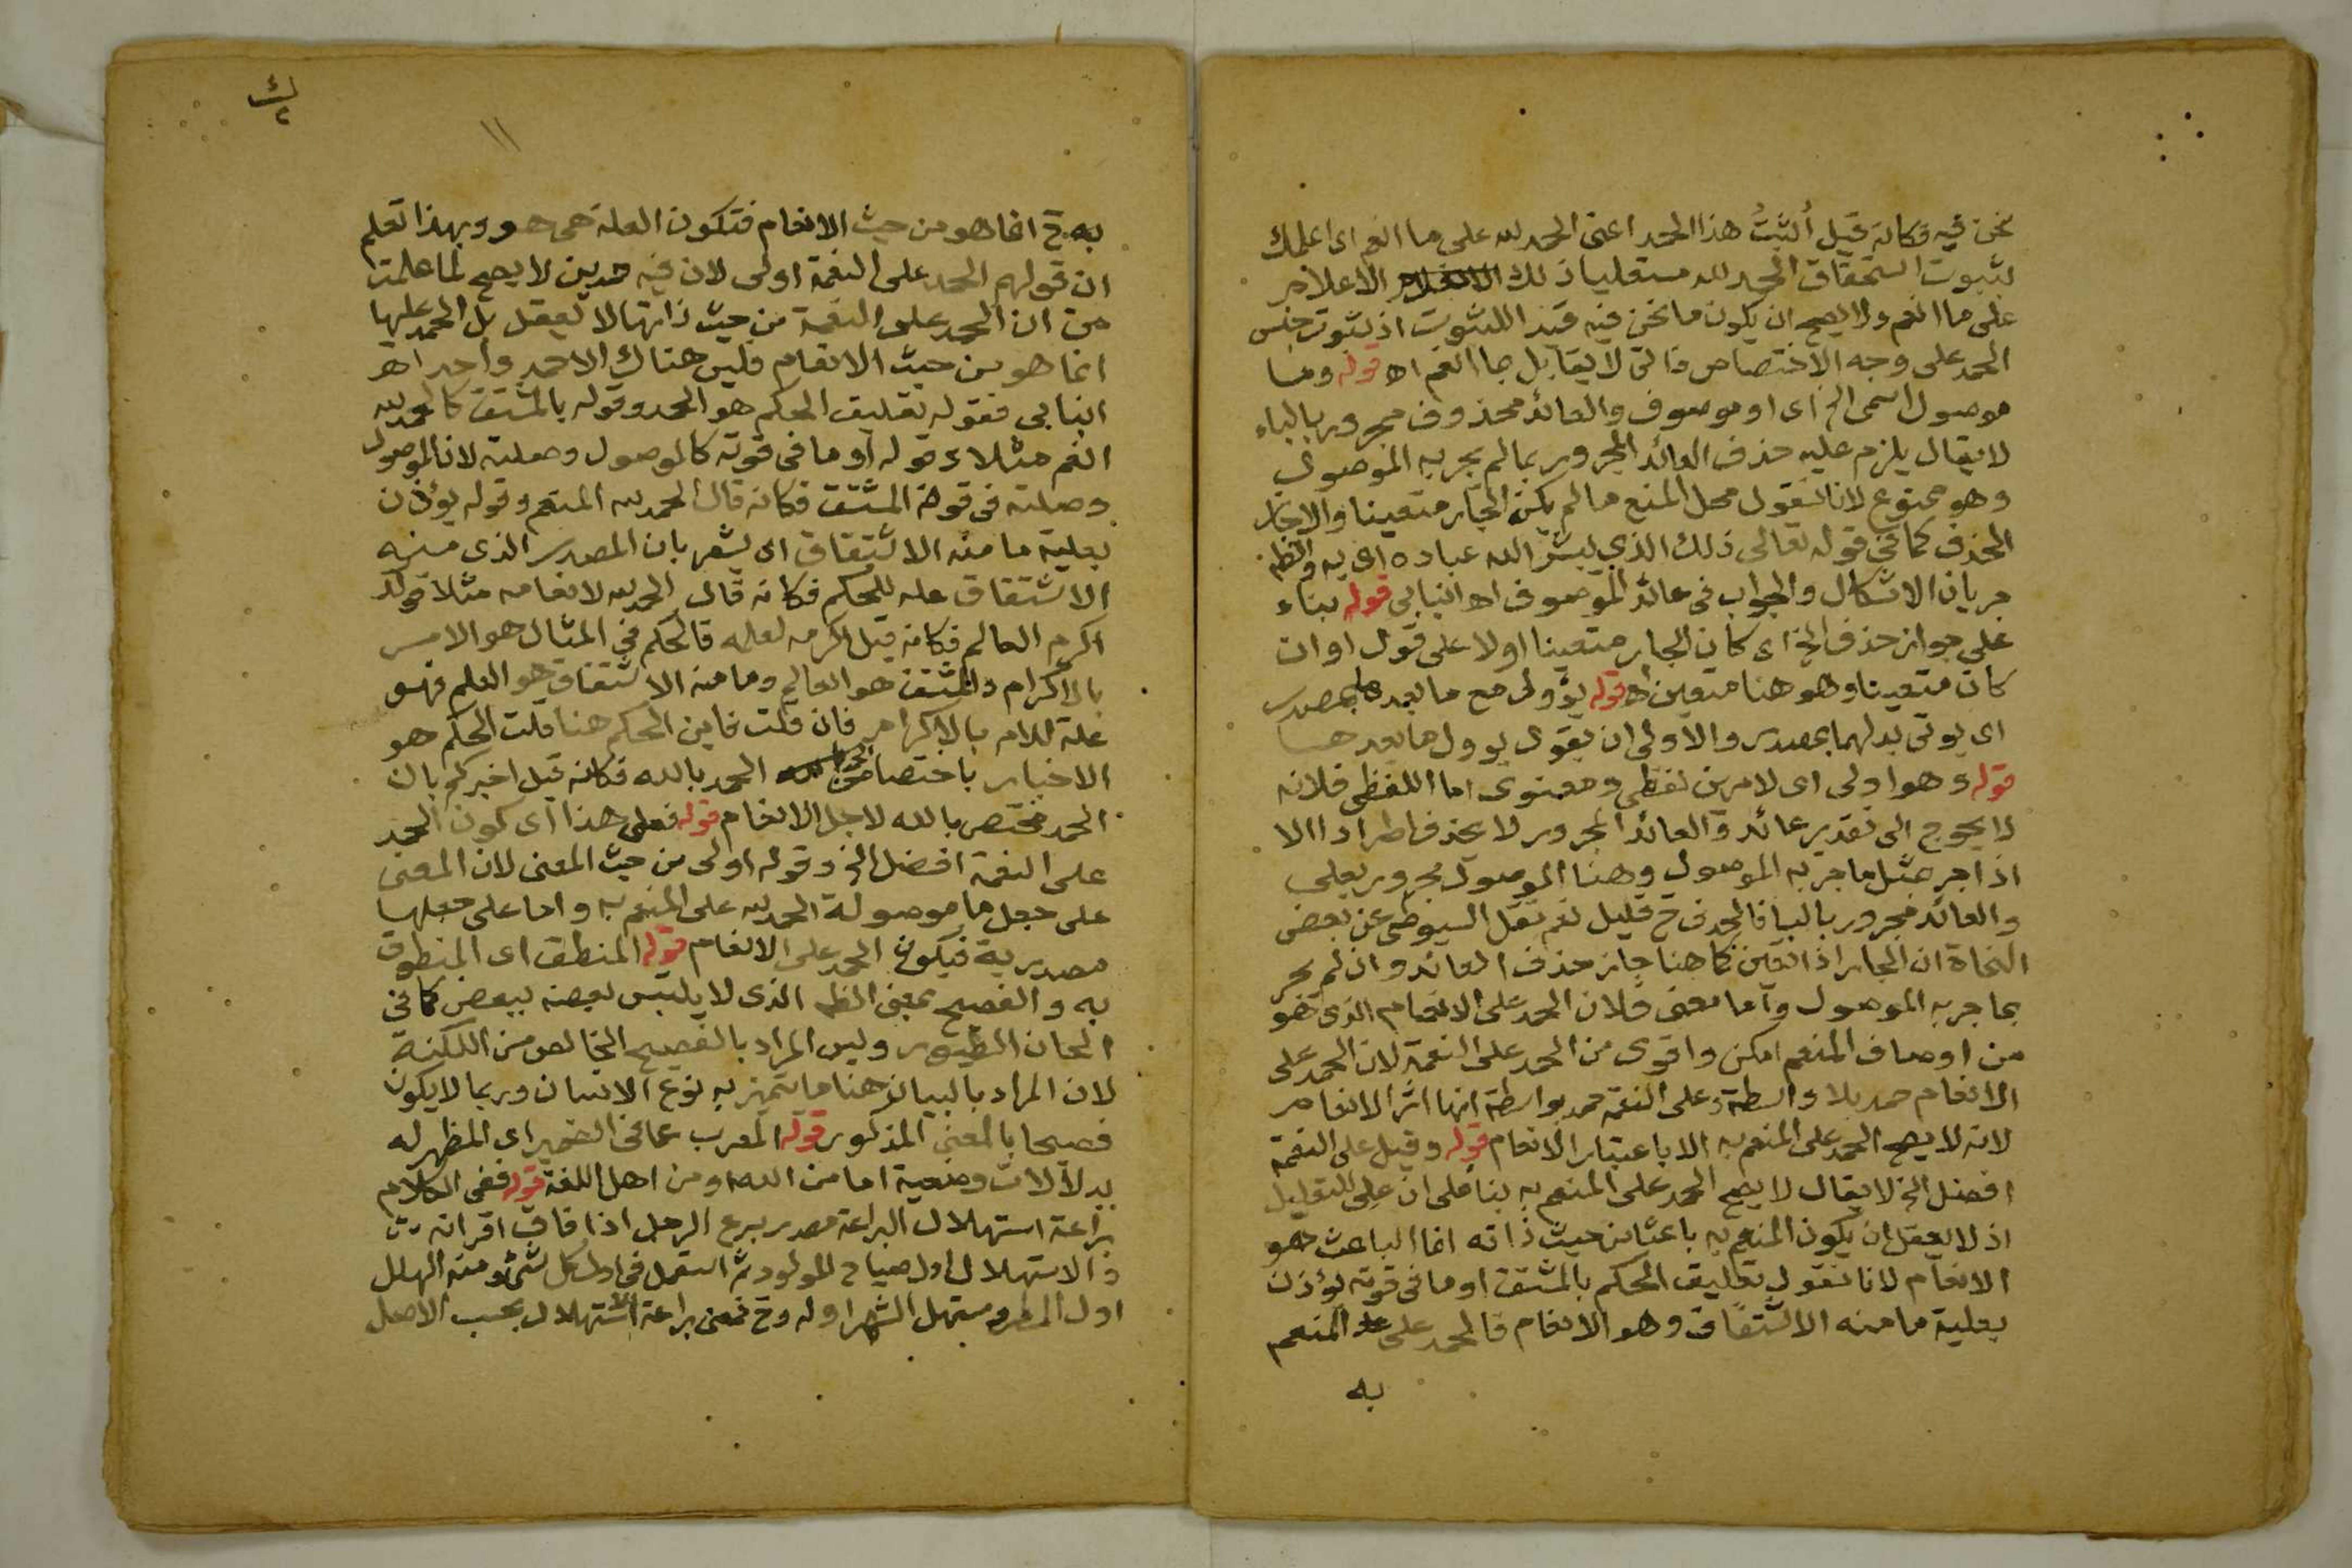 نحن فيه فكانه قيل أُثبتُ هذا الحمد اعنى الحمد لله على ما انعم اى اعلمك
لثبوت استحقاق الحمد لله مستعليا ذلك الاعلام
على ما انعم ولا يصح ان يكون ما نحن فيه قيد اللثبوت اذ ثبوت جنس
الحمد على وجه الاختصاص ذاتى لا يقابل بما انعم اه قوله وما
موصول اسمى الخ اى او موصوف والعائد محذوف مجرور بالباء
لا يقال يلزم عليه حذف العائد المجرور بما لم يجر به الموصول
وهو ممنوع لانا نقول محل المنع ما لم يكن الجار متعينا والا جاز
الحذف كما فى قوله تعالى ذلك الذى يبشر الله عباده اى به والظ
جريان الاشكال والجواب فى عائد الموصوف اه انبابى قوله بناء
على جواز حذف الخ اى كان الجار متعينا اولا على قول او ان
كان متعينا وهو هنا متعين اه قوله يؤول مع ما بعدها بمصدر
اى يوتى بدلهما بمصدر والاولى ان يقول يوول ما بعدها
قوله وهو اولى اى لامرين لفظى ومعنوى اما اللفظى فلانه
لا يحوج الى تقدير عائد والعائد المجرور لا يحذف اطرادا الا
اذا جر بمثل ما جر به الموصول وهنا الموصول مجرور بعلى
والعائد مجرور بالبا فالحذف ح قليل نعم نقل السيوطى عن بعض
النحاة ان الجار اذا تعين كما هنا جاز حذف العائد وان لم يجر
بما جر به الموصول واما معنى فلان الحمد على الانعام الذى هو
من اوصاف المنعم امكن واقوى من الحمد على النعمة لان الحمد على
الانعام حمد بلا واسطة وعلى النعمة حمد بواسطة انها اثر الانعام
لانه لا يصح الحمد على المنعم به الا باعتبار الانعام قوله وقيل على النعمة
افضل الخ لا يقال لا يصح الحمد على المنعم به بنا على ان على للتعليل
اذ لا يعقل ان يكون المنعم به باعثا من حيث ذاته انما الباعث هو
الانعام لانا نقول تعليق الحكم بالمشتق او ما فى قوته يؤذن
بعلية ما منه الاشتقاق وهو الانعام فالحمد على المنعم
به
١١
به ح انما هو من حيث الانعام فتكون العلة هى هو وبهذا تعلم
ان قولهم الحمد على النعمة اولى لان فيه حمدين لا يصح لما علمت
من ان الحمد على النعمة من حيث ذاتها لا يعقل بل الحمد عليها
انما هو من حيث الانعام فليس هناك الا حمد واحد اه
انبابى فقوله تعليق الحكم هو الحمد وقوله بالمشتق كالحمد لله
انعم مثلا وقوله او ما فى قوته كالموصول وصلته لان الموصول
وصلته فى قوة المشتق فكانه قال الحمد لله المنعم وقوله يؤذن
بعلية ما منه الاشتقاق اى يشعر بان المصدر الذى منه
الاشتقاق علة للحكم فكانه قال الحمد لله لانعامه مثلا قولك
اكرم العالم فكانه قيل اكرمه لعلمه فالحكم فى المثال هو الامر
بالاكرام والمشتق هو العالم وما منه الاشتقاق هو العلم فهو
علة للامر بالاكرام فان قلت فاين الحكم هنا قلت الحكم هو
الاخبار باختصاص الحمد بالله فكانه قيل اخبركم بان
الحمد مختص بالله لاجل الانعام قوله فعلى هذا اى كون الحمد
على النعمة افضل الخ وقوله اولى من حيث المعنى لان المعنى
على جعل ما موصولة الحمد لله على المنعم به واما على جعلها
مصدرية فيكون الحمد على الانعام قوله المنطق اى المنطوق
به والفصيح بمعنى الظ الذى لا يلتبس بعضه ببعض كما فى
الحان الطيور وليس المراد بالفصيح الخالص من اللكنة
لان المراد بالبيان هنا ما يتميز به نوع الانسان وربما لا يكون
فصيحا بالمعنى المذكور قوله المعرب عما فى الضمير اى المظهر له
بدلالات وضعية اما من الله او من اهل اللغة قوله ففى الكلام
براعة استهلال البراعة مصدر برع الرجل اذا فاق اقرانه
والاستهلال اول صياح المولود ثم استعمل فى اول كل شئ ومنه الهلل
اول المطر ومستهل الشهر اوله وح فمعنى براعة الاستهلال بحسب الاصل